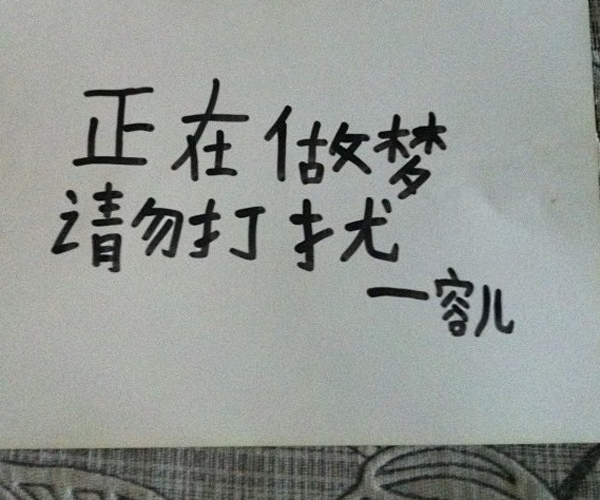 正在做梦
请勿打扰
—容儿